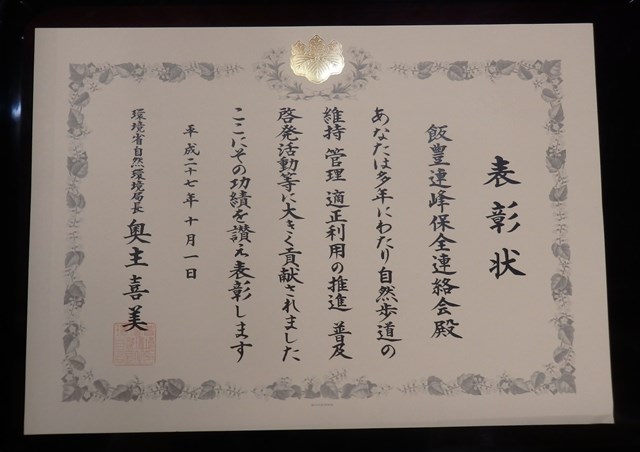 表彰状
飯豊連峰保全連絡会殿
あなたは多年にわたり自然歩道の
維持 管理 適正利用の推進 普及
啓発活動等に大きく貢献されました
ここにその功績を讃え表彰します
平成二十七年 十月 一日
環境省自然環境局長 奥主喜美